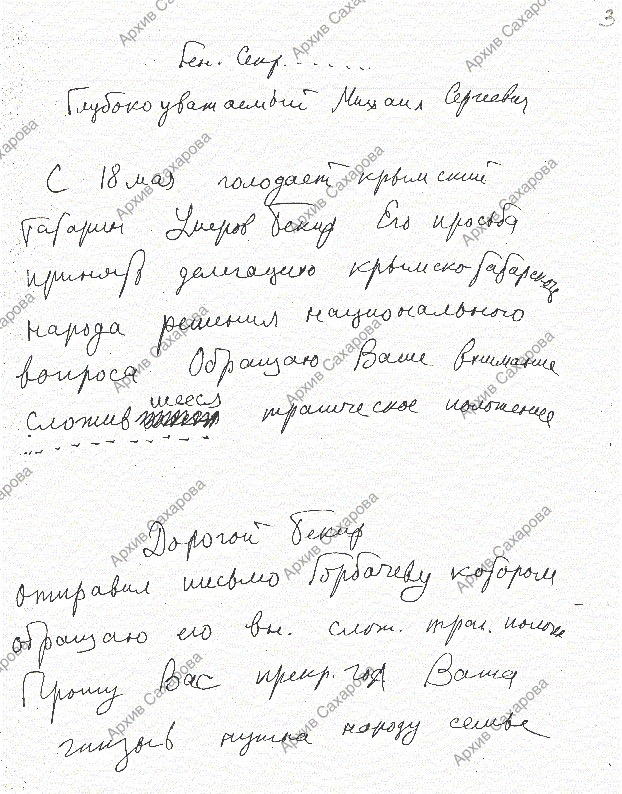 3
Ген. Секр. . . . . . . .
Глубокоуважаемый Михаил Сергеевич
С 18 мая голодает крымский
татарин Умеров Бекир Его просьба
принять делегацию крымскотатарского
народа решения национального
вопроса Обращаю Ваше внимание
сложившееся трагическое положение
Дорогой Бекир
отправил письмо Горбачеву котором
обращаю его вн. слож. траг. полож
Прошу Вас прекр. гол Ваша
жизнь нужна народу семье
Архив Сахарова